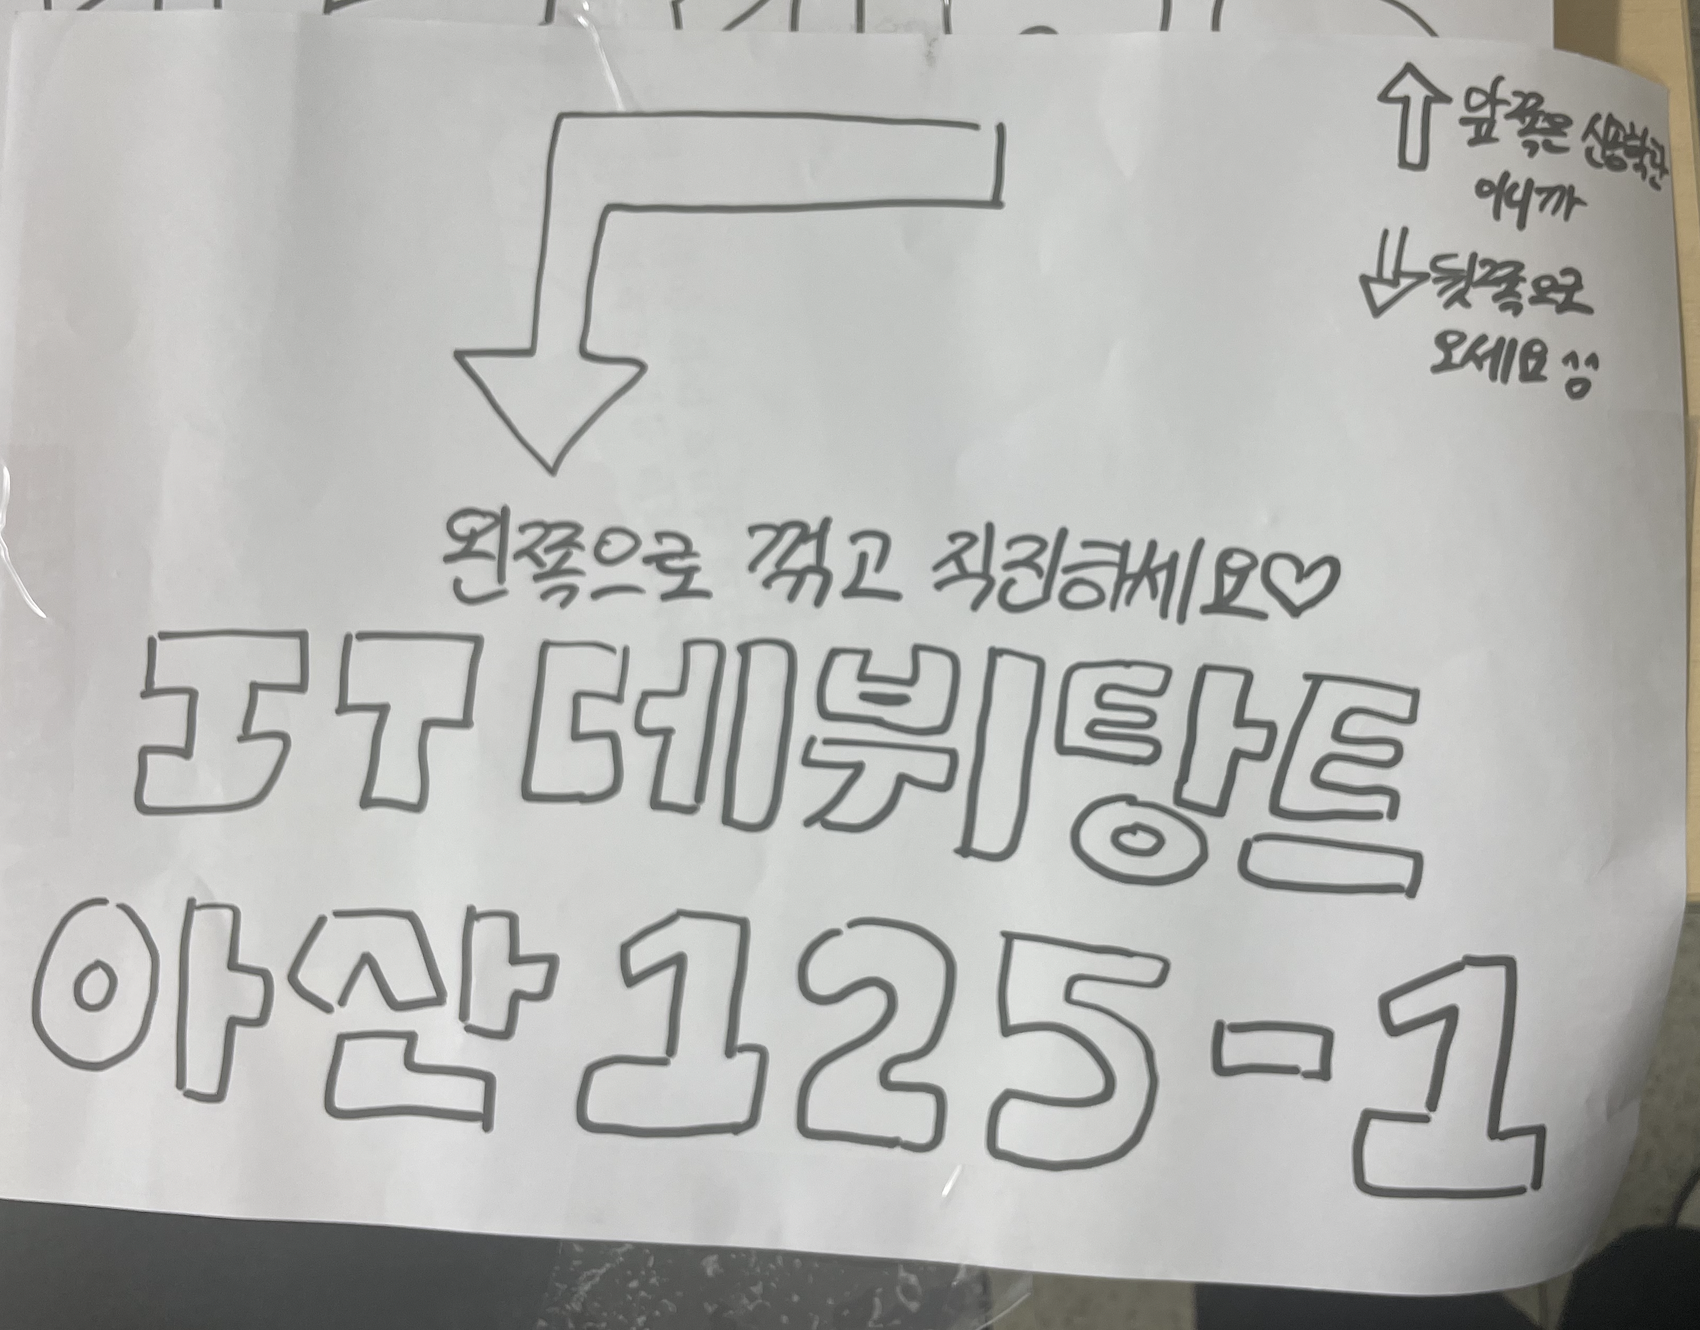 앞쪽은 신공학관
이니까
뒷쪽으로
오세요 ^^
왼쪽으로 꺾고 직진하세요♡
IT 데뷔탕트
아산 125-1